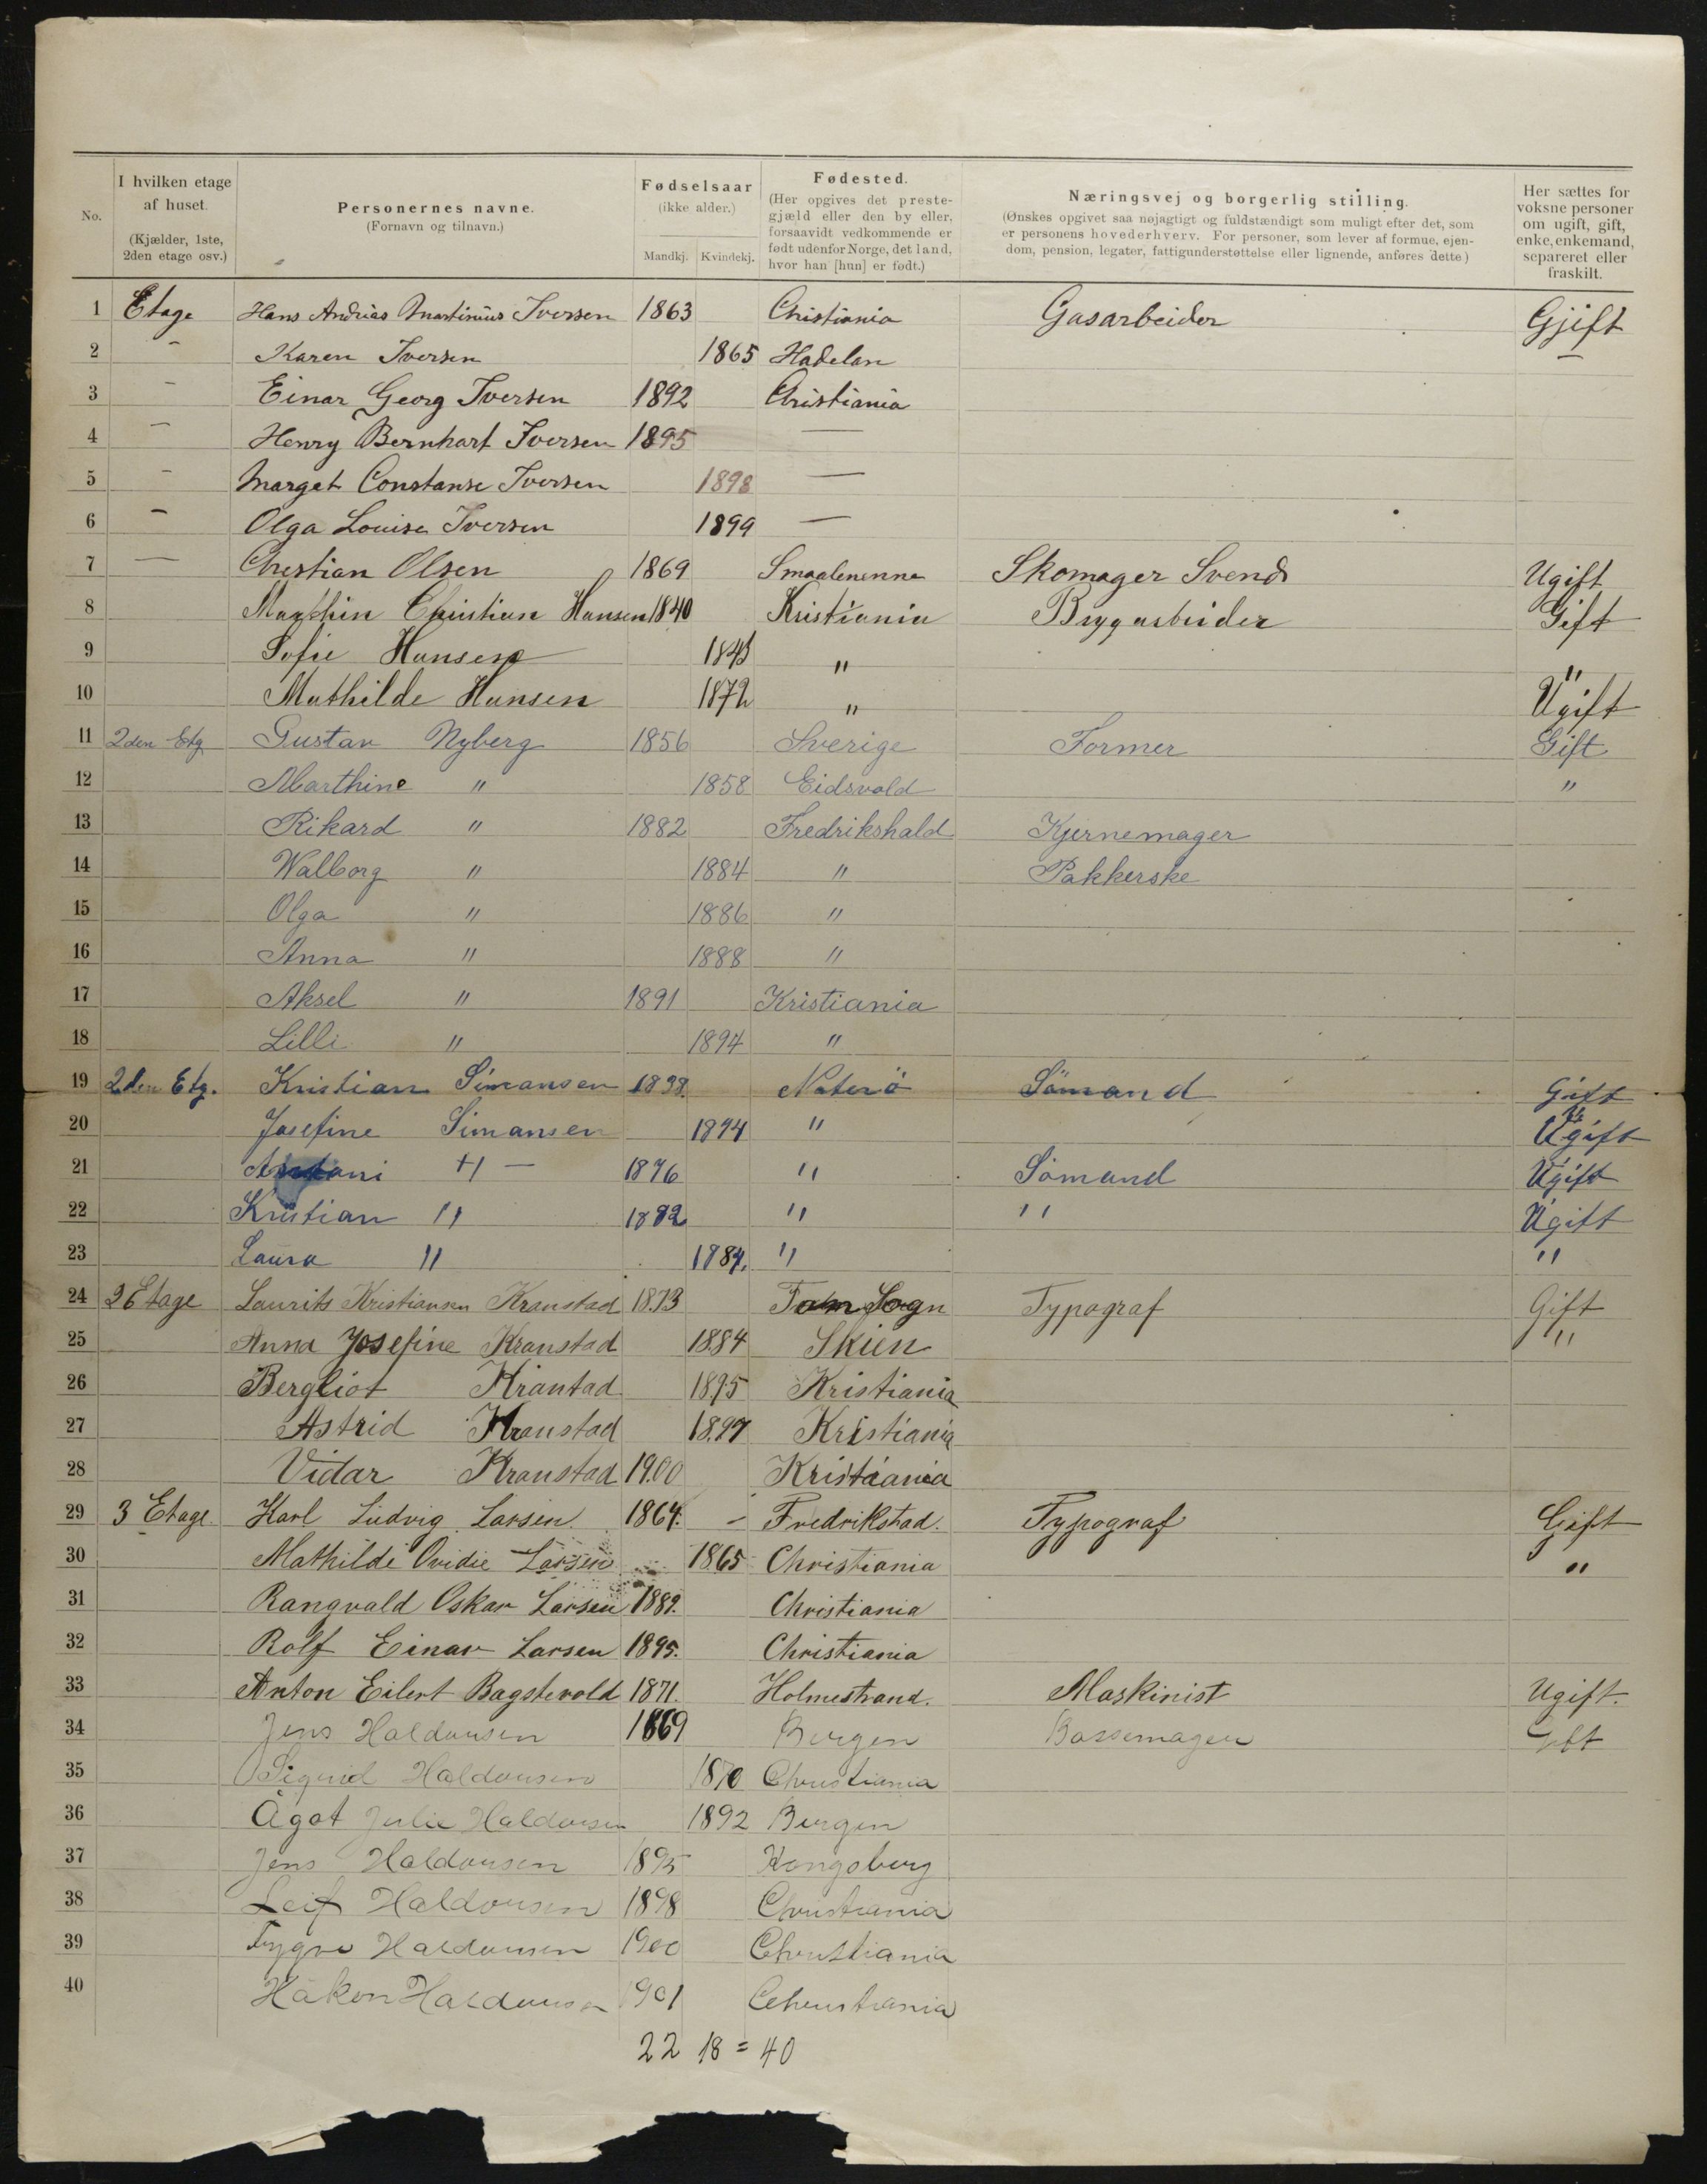 No. I hvilken etage af huset. (Kjælder, 1ste, 2den etage osv.) Personernes navne. (Fornavn og tilnavn.) Fødselsaar (ikke alder.) Mandkj. Kvindekj. Fødested. (Her opgives det prestegjæld eller den by eller, forsaavidt vedkommende er født udenfor Norge, det land, hvor han [hun] er født.) Næringsvej og borgerlig stilling. (Ønskes opgivet saa nøjagtigt og fuldstændigt som muligt efter det, som er personens hovederhverv. For personer, som lever af formue, ejendom, pension, legater, fattigunderstøttelse eller lignende, anføres dette) Her sættes for voksne personer om ugift, gift, enke, enkemand, separeret eller fraskilt.
1 Etage Hans Andrias Martinius Iversen 1863 Christiania Gasarbeider Gjift
2 - Karen Iversen 1865 Hadelan -
3 - Einar Georg Iversen 1892 Christiania
4 - Henry Bernhart Iversen 1895 -
5 - Margat Constanse Iversen 1898 -
6 - Olga Louise Iversen 1899 -
7 - Chrestian Olsen 1869 Smaalenenna Skomager Svend Ugift
8 Marthin Christian Hansen 1840 Kristiania Brygarbeider Gift
9 Sofie Hansen " "
10 Mathilde Hansen 1872 " Ugift
11 2den Etg Gustav Nyberg 1856 Sverige Former Gift
12 Marthine " 1858 Eidsvold "
13 Rikard " 1882 Fredrikshald Kjernemager
14 Walborg " 1884 " Pakkerske
15 Olga " 1886 "
16 Anna " 1888 "
17 Aksel " 1891 Kristiania
18 Lilli " 1894 "
19 2den Etg. Kristian Simansen 1838. Nøterö Sömand Gift
20 Josefine Simansen " Ugift
21 Antoni - 1876 " Sömand Ugift
22 Kristian " 1882 " " Ugift
23 Laura " 1884. " "
24 2 Etage Laurits Kristiansen Kranstad 1873 Sogn Typograf Gift
25 Anna Josefine Kranstad 1884 Skien "
26 Bergliot Kranstad 1895 Kristiania
27 Astrid Kranstad 1897 Kristiania
28 Vidar Kranstad 1900 Kristiania
29 3 Etage. Karl Ludvig Larsen 1864. - Fredrikstad. Typograf Gift
30 Mathilde Ovidie Larsen 1865 Christiania "
31 Rangvald Oskar Larsen 1889. Christiania
32 Rolf Einar Larsen 1895. Christiania
33 Anton Eilert Bagstevold 1871. Holmestrand. Maskinist Ugift.
34 Jens Haldorsen 1869 Bergen Børssemager Gift
35 Sigrid Haldorsen 1870 Christiania
36 Ågot Julie Haldorsen 1892 Bergen
37 Jens Haldorsen 1895 Kongsberg
38 Leif Haldorsen 1898 Christiania
39 Tygve Haldorsen 1900 Christiania
40 Håkon Haldorsen 1901 Christiania
22 18 = 40